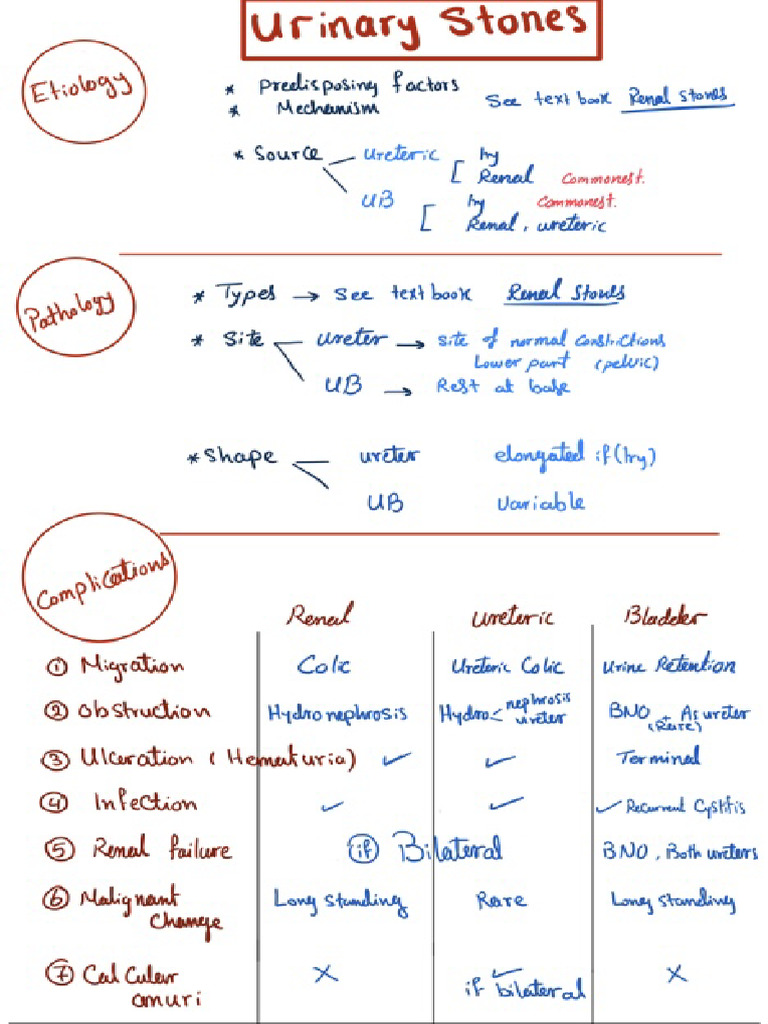 Urinary Stones
Etiology
* Predisposing factors
* Mechanism
See text book Renal stones
* Source
ureteric
[ 1ry
Renal Commonest.
UB
[ 1ry Commonest.
Renal, ureteric
Pathology
* Types → See text book Renal Stones
* Site
ureter → site of normal constrictions
Lower part (pelvic)
UB → Rest at base
* Shape
ureter elongated if (1ry)
UB Variable
Complications
Renal ureteric Bladder
① Migration Colic Ureteric Colic Urine Retention
② obstruction Hydronephrosis Hydro < nephrosis ureter BNO + As ureter (Rare)
③ Ulceration (Hematuria) ✓ ✓ Terminal
④ Infection ✓ ✓ ✓ Recurrent Cystitis
⑤ Renal failure (if) Bilateral BNO, Both ureters
⑥ Malignant Change Long standing Rare Long standing
⑦ Calcular anuri X ✓ if bilateral X